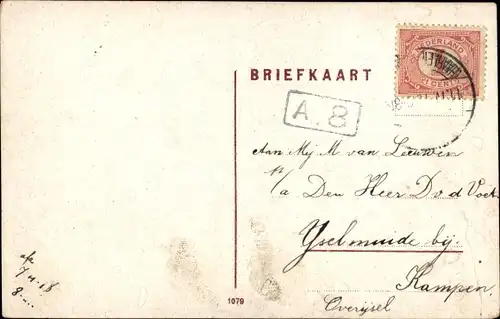 BRIEFKAART
NEDERLAND
CENT
A.8
Aan Mej M van Leeuwen
p/a Den Heer D v d Voet
Yselmuide bij
Kampen
Overijsel
7/4.18
8
1079